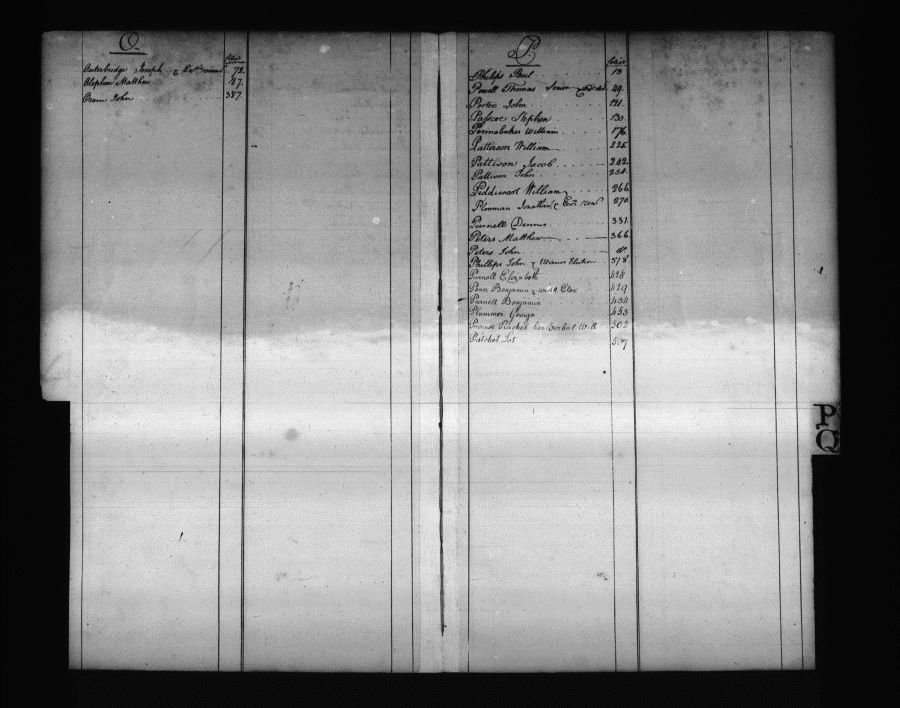 O.
folio
Outerbridge Joseph & 73.
Olephan Matthew 87.
Oram John 387.
P.
folio
Philips Paul 13
Powell Thomas Senior 49.
Porter John 121.
Passcoe Stephen 130.
Pennabaker William 176
Patterson William 225
Pattison Jacob 242
Pattison John 234.
Peddiewart William 266
Plowman Jonathan & 270
Purnell Dennis 331.
Peters Matthew 366
Peters John do
Phillips John & 378
Purnell Elizabeth 428
Penn Benjamin & 429
Purnell Benjamin 434
Plummer George 453
Prouse Rachel her Verbal Will 502
Patchet Lot 507
P
Q